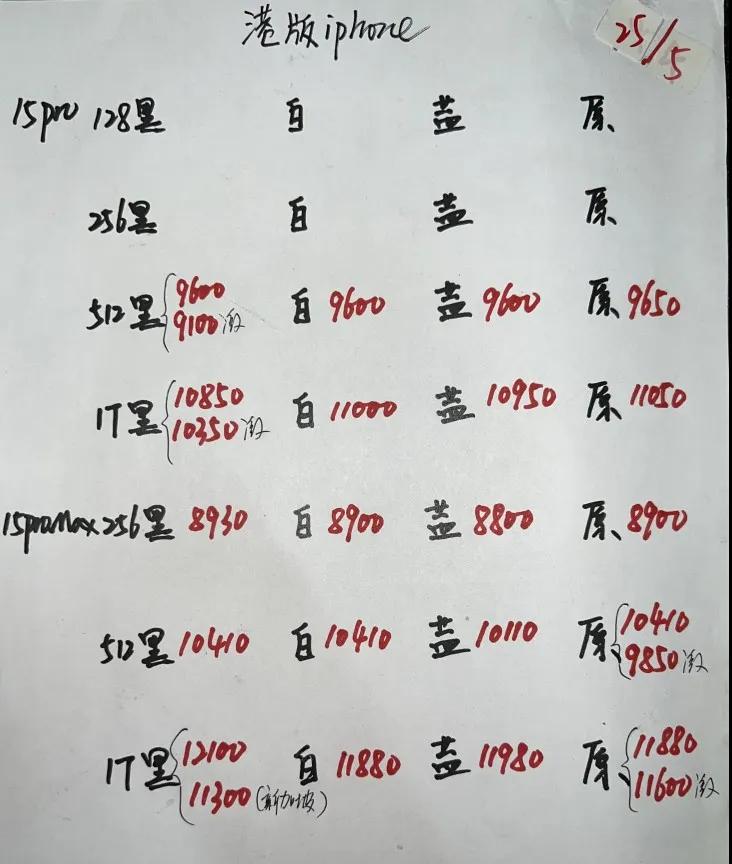 港版iphone
25/5
15pro 128黑 白 蓝 原
256黑 白 蓝 原
512黑 9600 白 9600 蓝 9600 原 9650
9100 激
1T黑 10850 白 11000 蓝 10950 原 11050
10350 激
15promax 256黑 8930 白 8900 蓝 8800 原 8900
512黑 10410 白 10410 蓝 10110 原 10410
9850 激
1T黑 12100 白 11880 蓝 11980 原 11880
11300 (新加坡) 11600 激